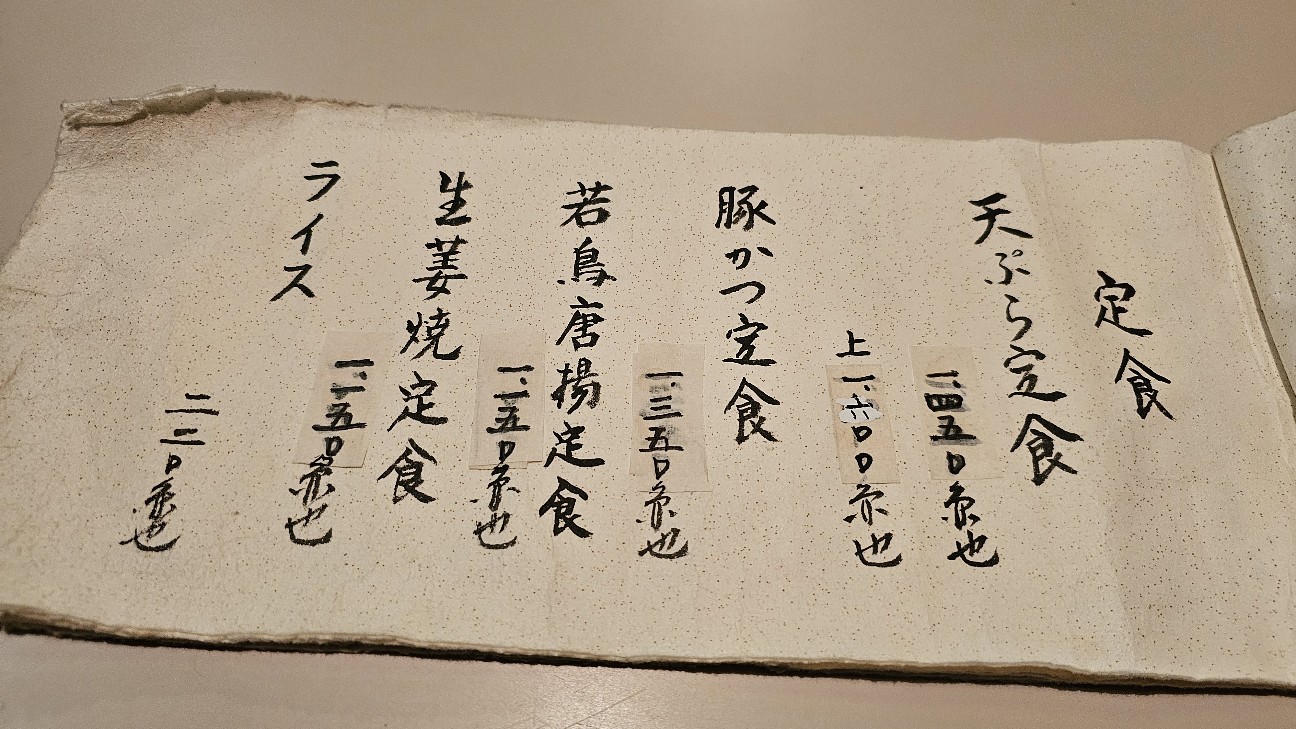 定食
天ぷら定食
一、四五〇円也
上一、六〇〇円也
豚かつ定食
一、三五〇円也
若鳥唐揚定食
一、一五〇円也
生姜焼定食
一、一五〇円也
ライス
二二〇円也